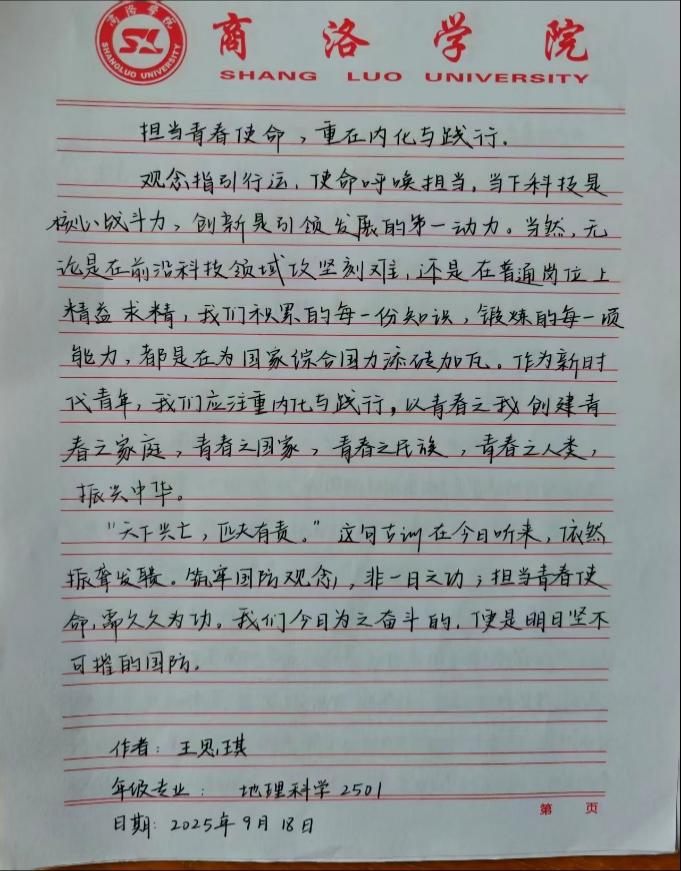 商洛学院
SHANGLUO UNIVERSITY
商洛学院
SHANG LUO UNIVERSITY
担当青春使命，重在内化与践行.
观念指引行运，使命呼唤担当，当下科技是
核心战斗力，创新是引领发展的第一动力。当然，无
论是在前沿科技领域攻坚刻难，还是在普通岗位上
精益求精，我们积累的每一份知识，锻炼的每一项
能力，都是在为国家综合国力添砖加瓦。作为新时
代青年，我们应注重内化与践行，以青春之我创建青
春之家庭，青春之国家，青春之民族，青春之人类，
振兴中华。
"天下兴亡，匹夫有责。"这句古训在今日听来，依然
振聋发聩。筑牢国防观念，非一日之功；担当青春使
命，需久久为功。我们今日为之奋斗的，便是明日坚不
可摧的国防。
作者：王思琪
年级专业：地理科学2501
日期：2025年9月18日
第 页